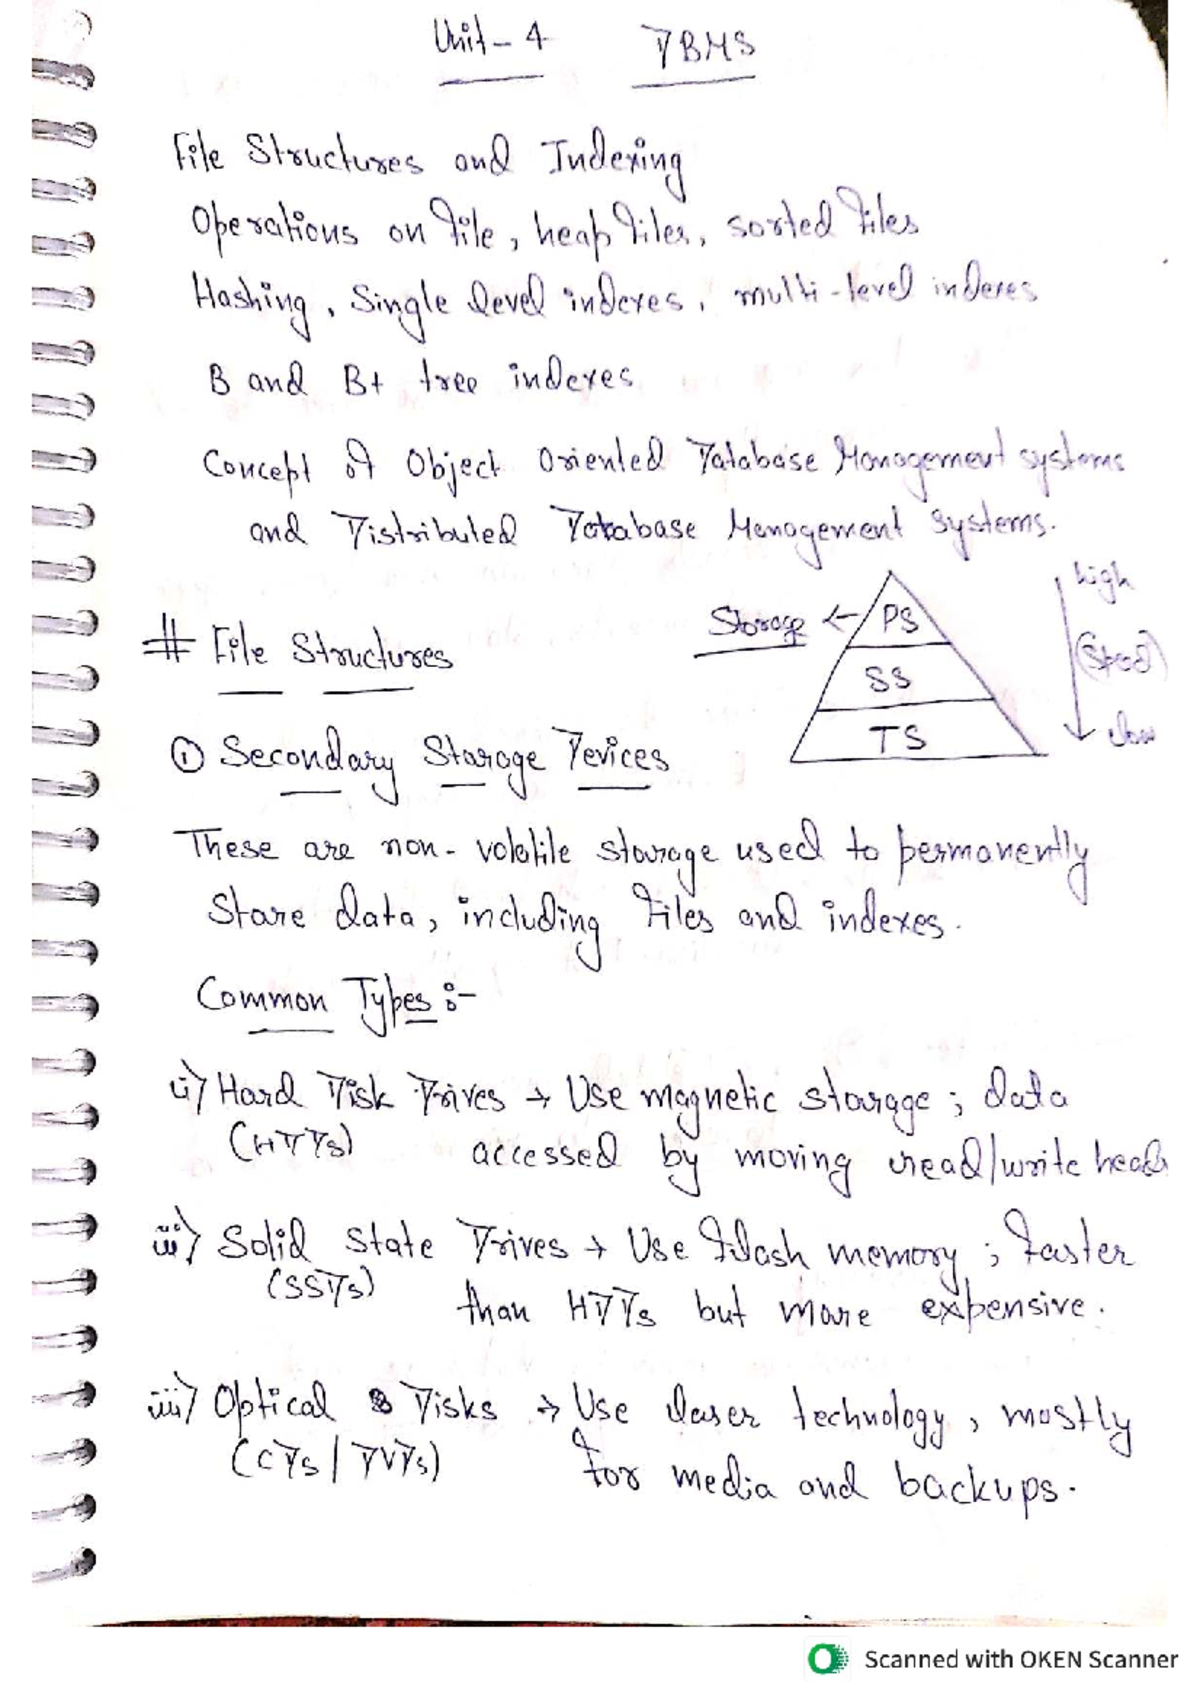 Unit - 4 DBMS
File Structures and Indexing
Operations on file, heap files, sorted files
Hashing, Single level indexes, multi-level indexes
B and B+ tree indexes
Concept of Object Oriented Database Management systems
and Distributed Database Management systems.
# File Structures
Storage ← PS
SS
TS
high
(Speed)
slow
① Secondary Storage Devices
These are non-volatile storage used to permanently
Store data, including files and indexes.
Common Types :-
i) Hard Disk Drives → Use magnetic storage ; data
(HDDs) accessed by moving read/write heads
ii) Solid State Drives → Use flash memory ; faster
(SSDs) than HDDs but more expensive.
iii) Optical Disks → Use laser technology, mostly
(CDs / DVDs) for media and backups.
Scanned with OKEN Scanner